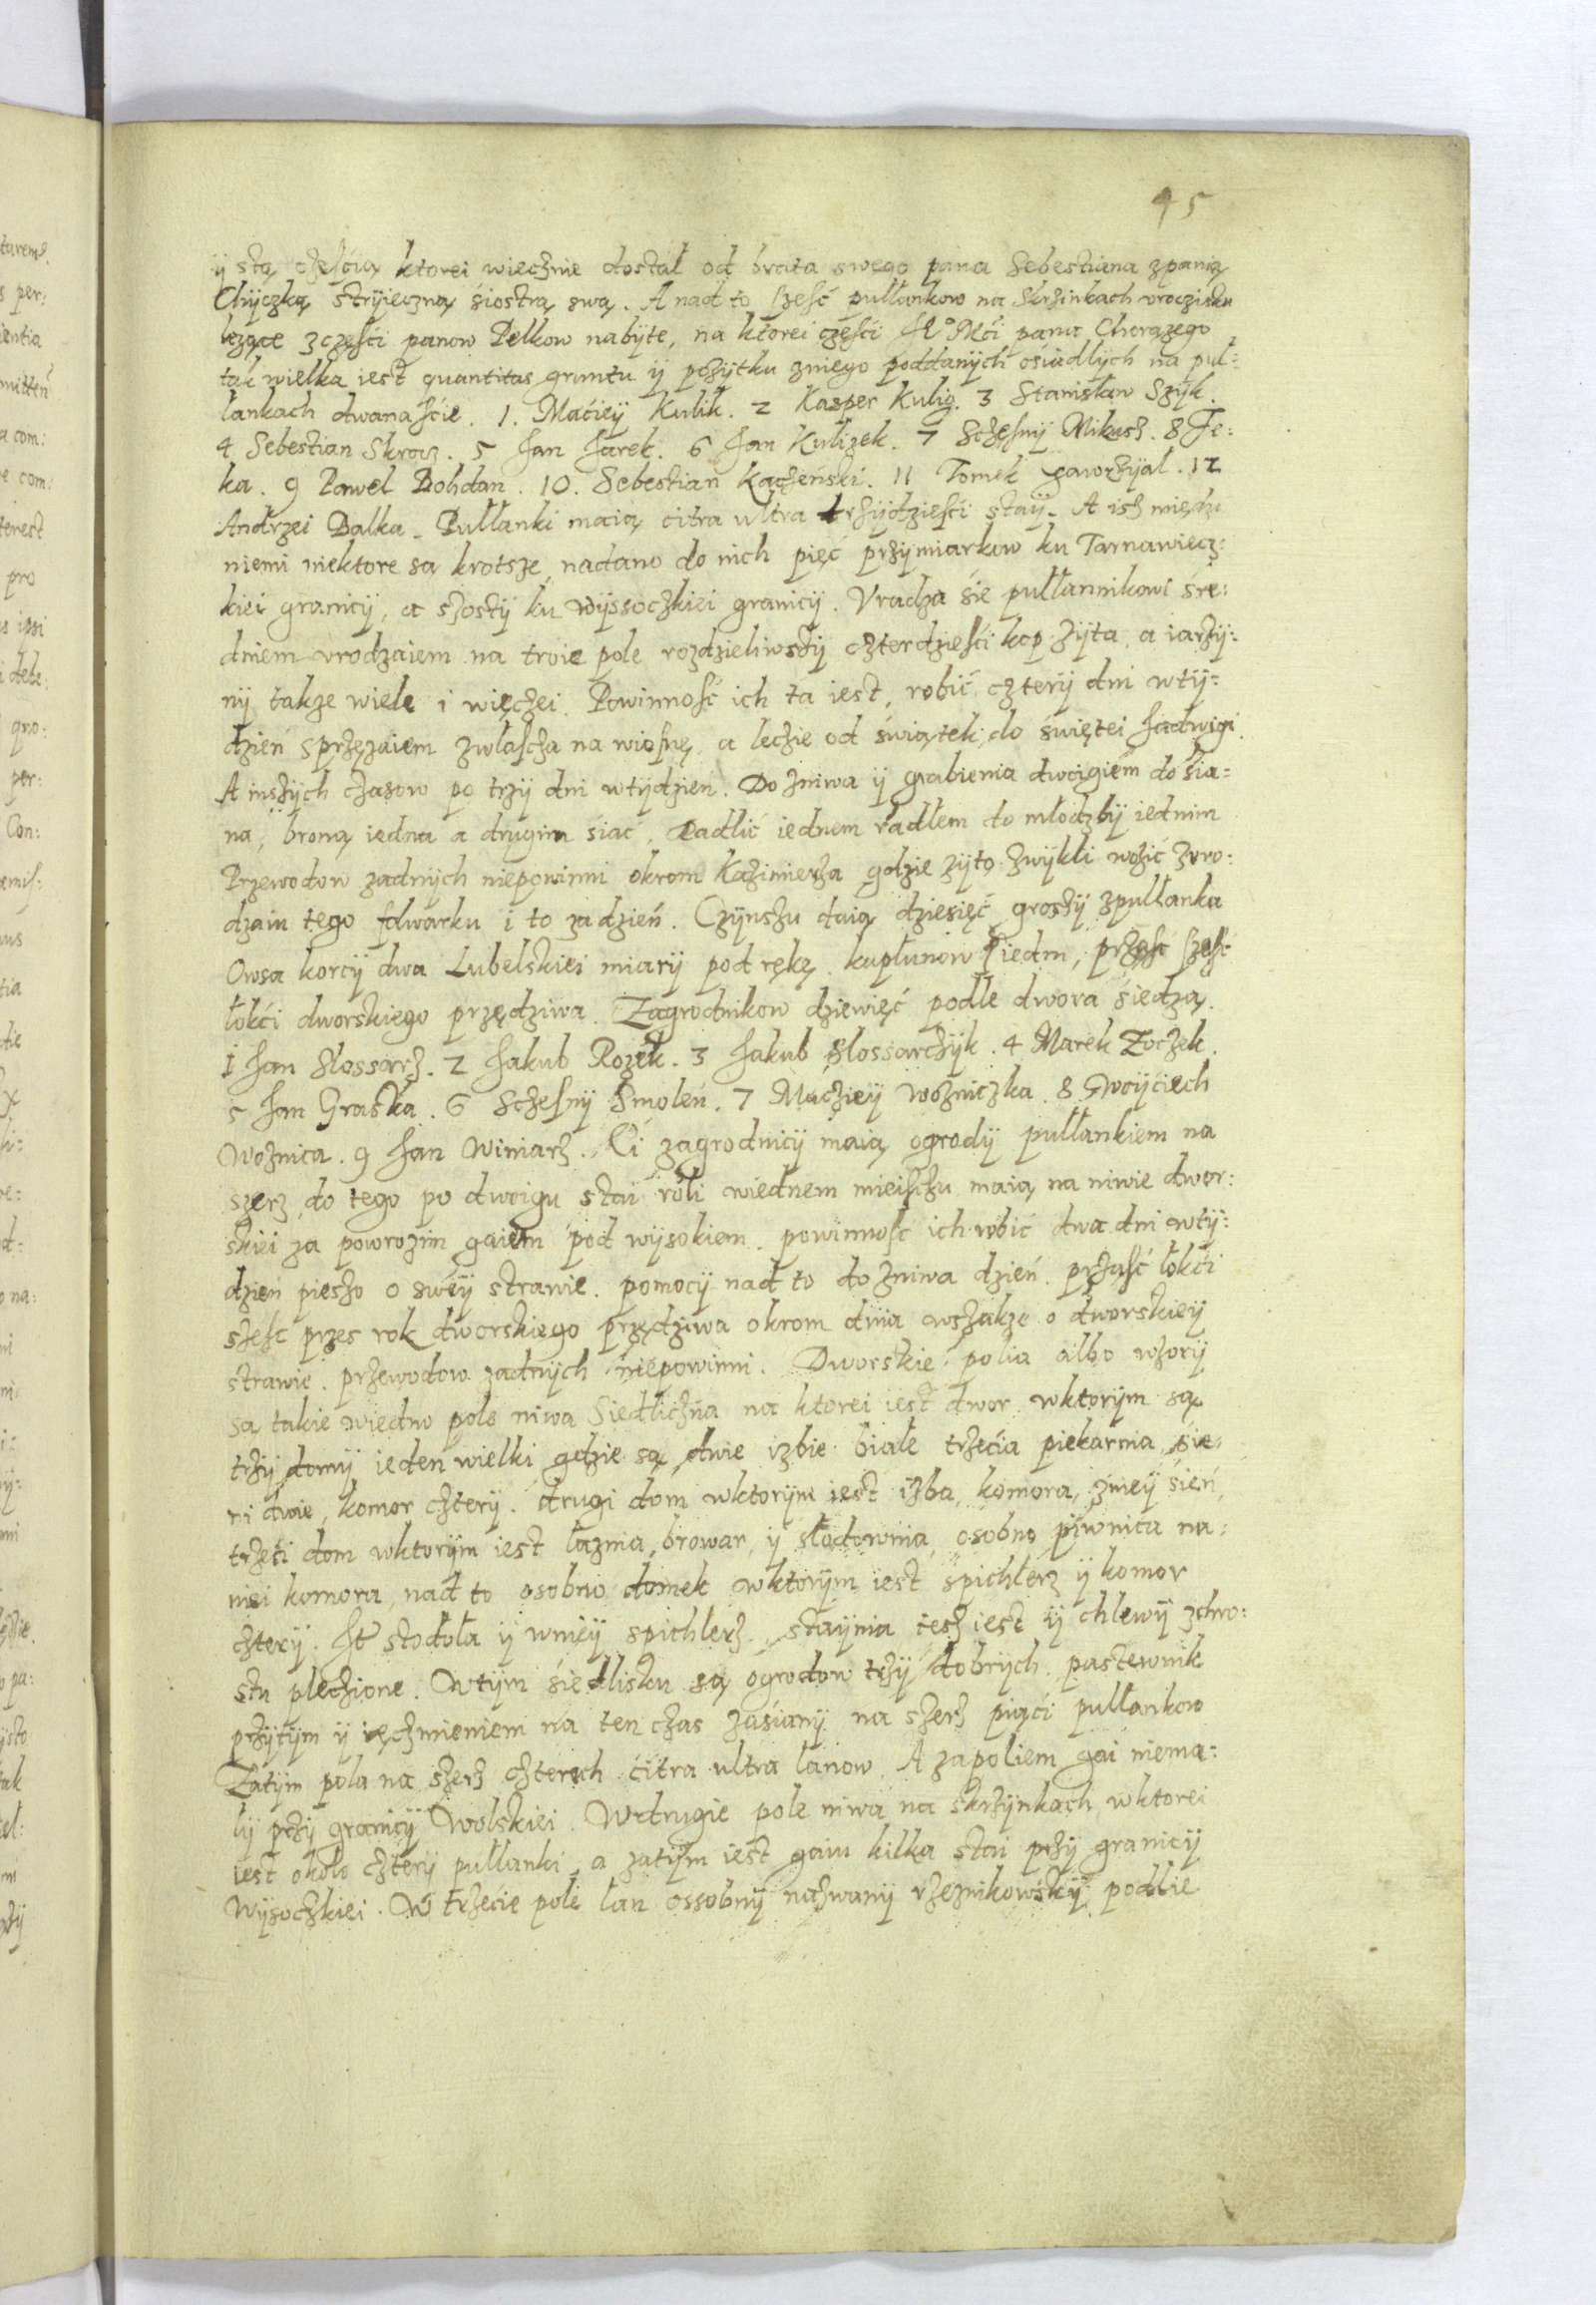 45
ÿ stą cżęścią ktorei wiecżnie dostał od brata swego pana Sebestiana zpanią
Chijczką strÿieczną śiostrą swą. A nad to szesć pułłankow na Skrżinkach vrocżisku
leżące zczęści panow Pełkow nabÿte, na ktorei częśći Je° Mći pana Chorążego
tak wielka iest quantitas gruntu ÿ pożÿtku zniego poddanÿch osiadłÿch na puł:
łankach dwanaśćie. 1. Maćieÿ Kulik. 2 Kasper Kulig. 3 Stanisław Szÿk.
4 Sebestian Skraż. 5 Jan Jarek. 6 Jan Kulizek. 7 Scżęsnÿ Mikusz. 8 Fe:
ka. 9 Paweł Bohdan. 10. Sebestian Kącżeński. 11 Tomek gaworżÿał. 12
Andrzei Balka. Pułłanki maią citra ultra trżÿdzieśći staÿ. A isz międzi
niemi niektore sa krotsze, nadano do nich pięć przÿmiarkow ku Tarnawiecz:
kiei granicÿ, a szostÿ ku Wÿssoczkiei granicÿ. Vradza śie pułłannikowi śre:
dniem vrodzaiem na troie pole rozdzieliwszÿ czterdzieśći kop żÿta, a iarżÿ:
nÿ takze wiele i więczei. Powinność ich ta iest, robić czterÿ dni wtÿ:
dzień sprzężaiem zwłascża na wiosnę, a lecżie od świątek do świętei Jadwigi.
A inszÿch cżasow po trzÿ dni wtÿdzień. Do żniwa ÿ grabienia dwoigiem do śia:
na, broną iedna a drugim śiać. Radlić iednem radłem do młodzbÿ iednim
Przewodow zadnÿch niepowinni okrom Każimierża gdzie żÿto zwÿkli wożić zvro:
dzaiu tego fdwarku i to za dzień. Czÿnszu daią dziesięć groszÿ zpułłanka
Owsa korcÿ dwa Lubelskiei miarÿ pod rękę. kapłunow siedm, prżęść szesć
łokći dworskiego przędziwa. Zagrodnikow dziewięć podle dwora śiedzą.
1 Jan Slossarz. 2 Jakub Rożek. 3 Jakub Slossarcżÿk. 4 Marek Zocżek.
5 Jan Graska. 6 Scżesnÿ Smoleń. 7 Macżieÿ Wożniczka. 8 Woÿciech
Wożnica. 9 Jan Winiarz. Ci zagrodnicÿ maią ogrodÿ pułłankiem na
szerz, do tego po dwoigu stai roli wiednem mieisczu maią na niwie dwor:
skiei za powrozim gaiem pod wÿsokiem. powinność ich robić dwa dni wtÿ:
dzień pieszo o sweÿ strawie. pomocÿ nad to do żniwa dzień. prżąść łokći
sześć przes rok dworskiego przędziwa okrom dnia wszakże o dworskieÿ
strawie. przewodow żadnÿch niepowinni. Dworskie polia albo vżorÿ
sa takie wiedno pole niwa Siedlicżna na ktorei iest dwor wktorÿm są
trżÿ domÿ ieden wielki gdzie są dwie izbie białe trżećia piekarnia, śie:
ni dwie, komor cżterÿ. drugi dom wktorÿm iest iżba, komora, znieÿ sień,
trżeći dom wktorÿm iest łaznia, browar, ÿ słodownia, osobno piwnica na:
niei komora, nad to osobno domek wktorÿm iest śpichlerz ÿ komor
cżterÿ. Jt stodoła ÿ wnieÿ spichlerz, staÿnia tesz iest ÿ chlewÿ zchro:
stu plecżione. Wtÿm śiedlisku są ogrodow trżÿ dobrÿch. pastewnik
prżÿtÿm ÿ ięczmieniem na ten cżas zaśianÿ na szerz piąći pułłankow
Zatÿm pola na szerz cżterech ćitra ultra łanow. A zapoliem gai niema:
łÿ przÿ granicÿ Wolskiei. Wdrugie pole niwa na skrżÿnkach, wktorei
iest około cżterÿ pułłanki, a zatÿm iest gaiu kilka stai przÿ granicÿ
Wÿsoczkiei. W trżećie pole łan ossobnÿ nażwanÿ rżeznikowskÿ podlie